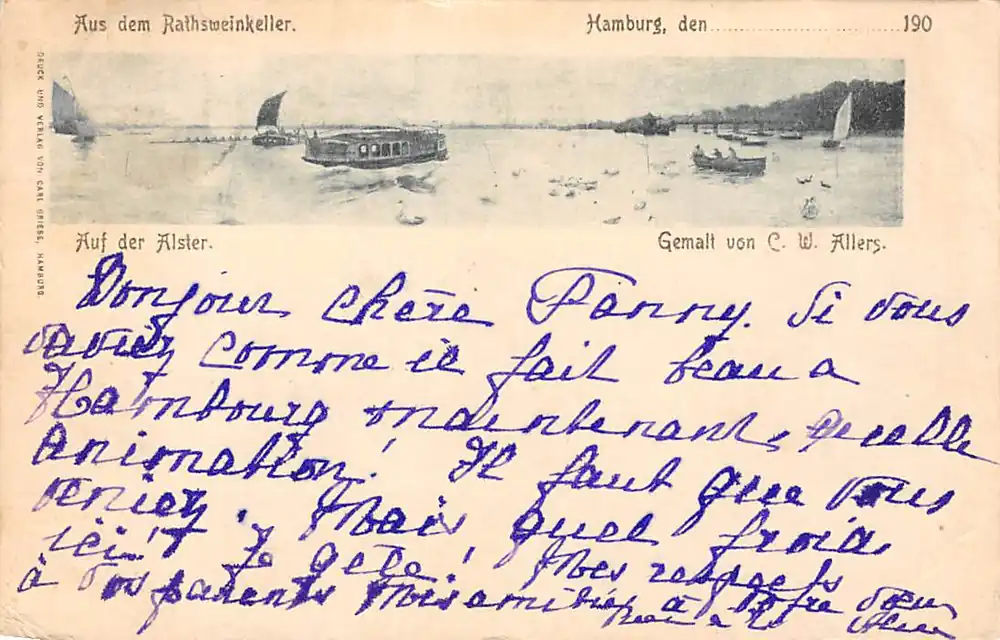 Aus dem Rathsweinkeller.
Hamburg, den 190
DRUCK UND VERLAG VON CARL GRIESE, HAMBURG.
Auf der Alster.
Gemalt von C. W. Allers.
Bonjour chère Fanny. Si vous
saviez comme il fait beau a
Hambourg maintenant, quelle
animation! Il faut que vous
veniez. Mais quel froid
ici! Je gèle! Mes respects
à vos parents Mes amitiés à votre